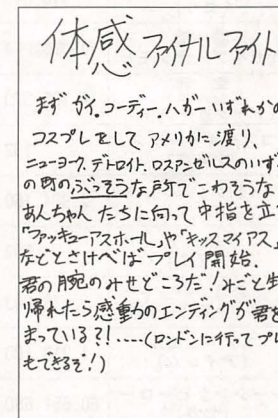 体感 ファイナルファイト
まず ガイ.コーディー.ハガー いずれかの
コスプレをして アメリカに渡り、
ニューヨーク.デトロイト.ロスアンゼルスのいず
の町のぶっそうな所でこわそうな
あんちゃん たちに向って 中指を立
「ファッキューアスホール」や「キッスマイアス」
などとさけべば プレイ開始.
君の腕のみせどころだ!みごと生
帰れたら感動のエンディングが君を
まっている?!....(ロンドンに行って プレ
もできるぞ!)